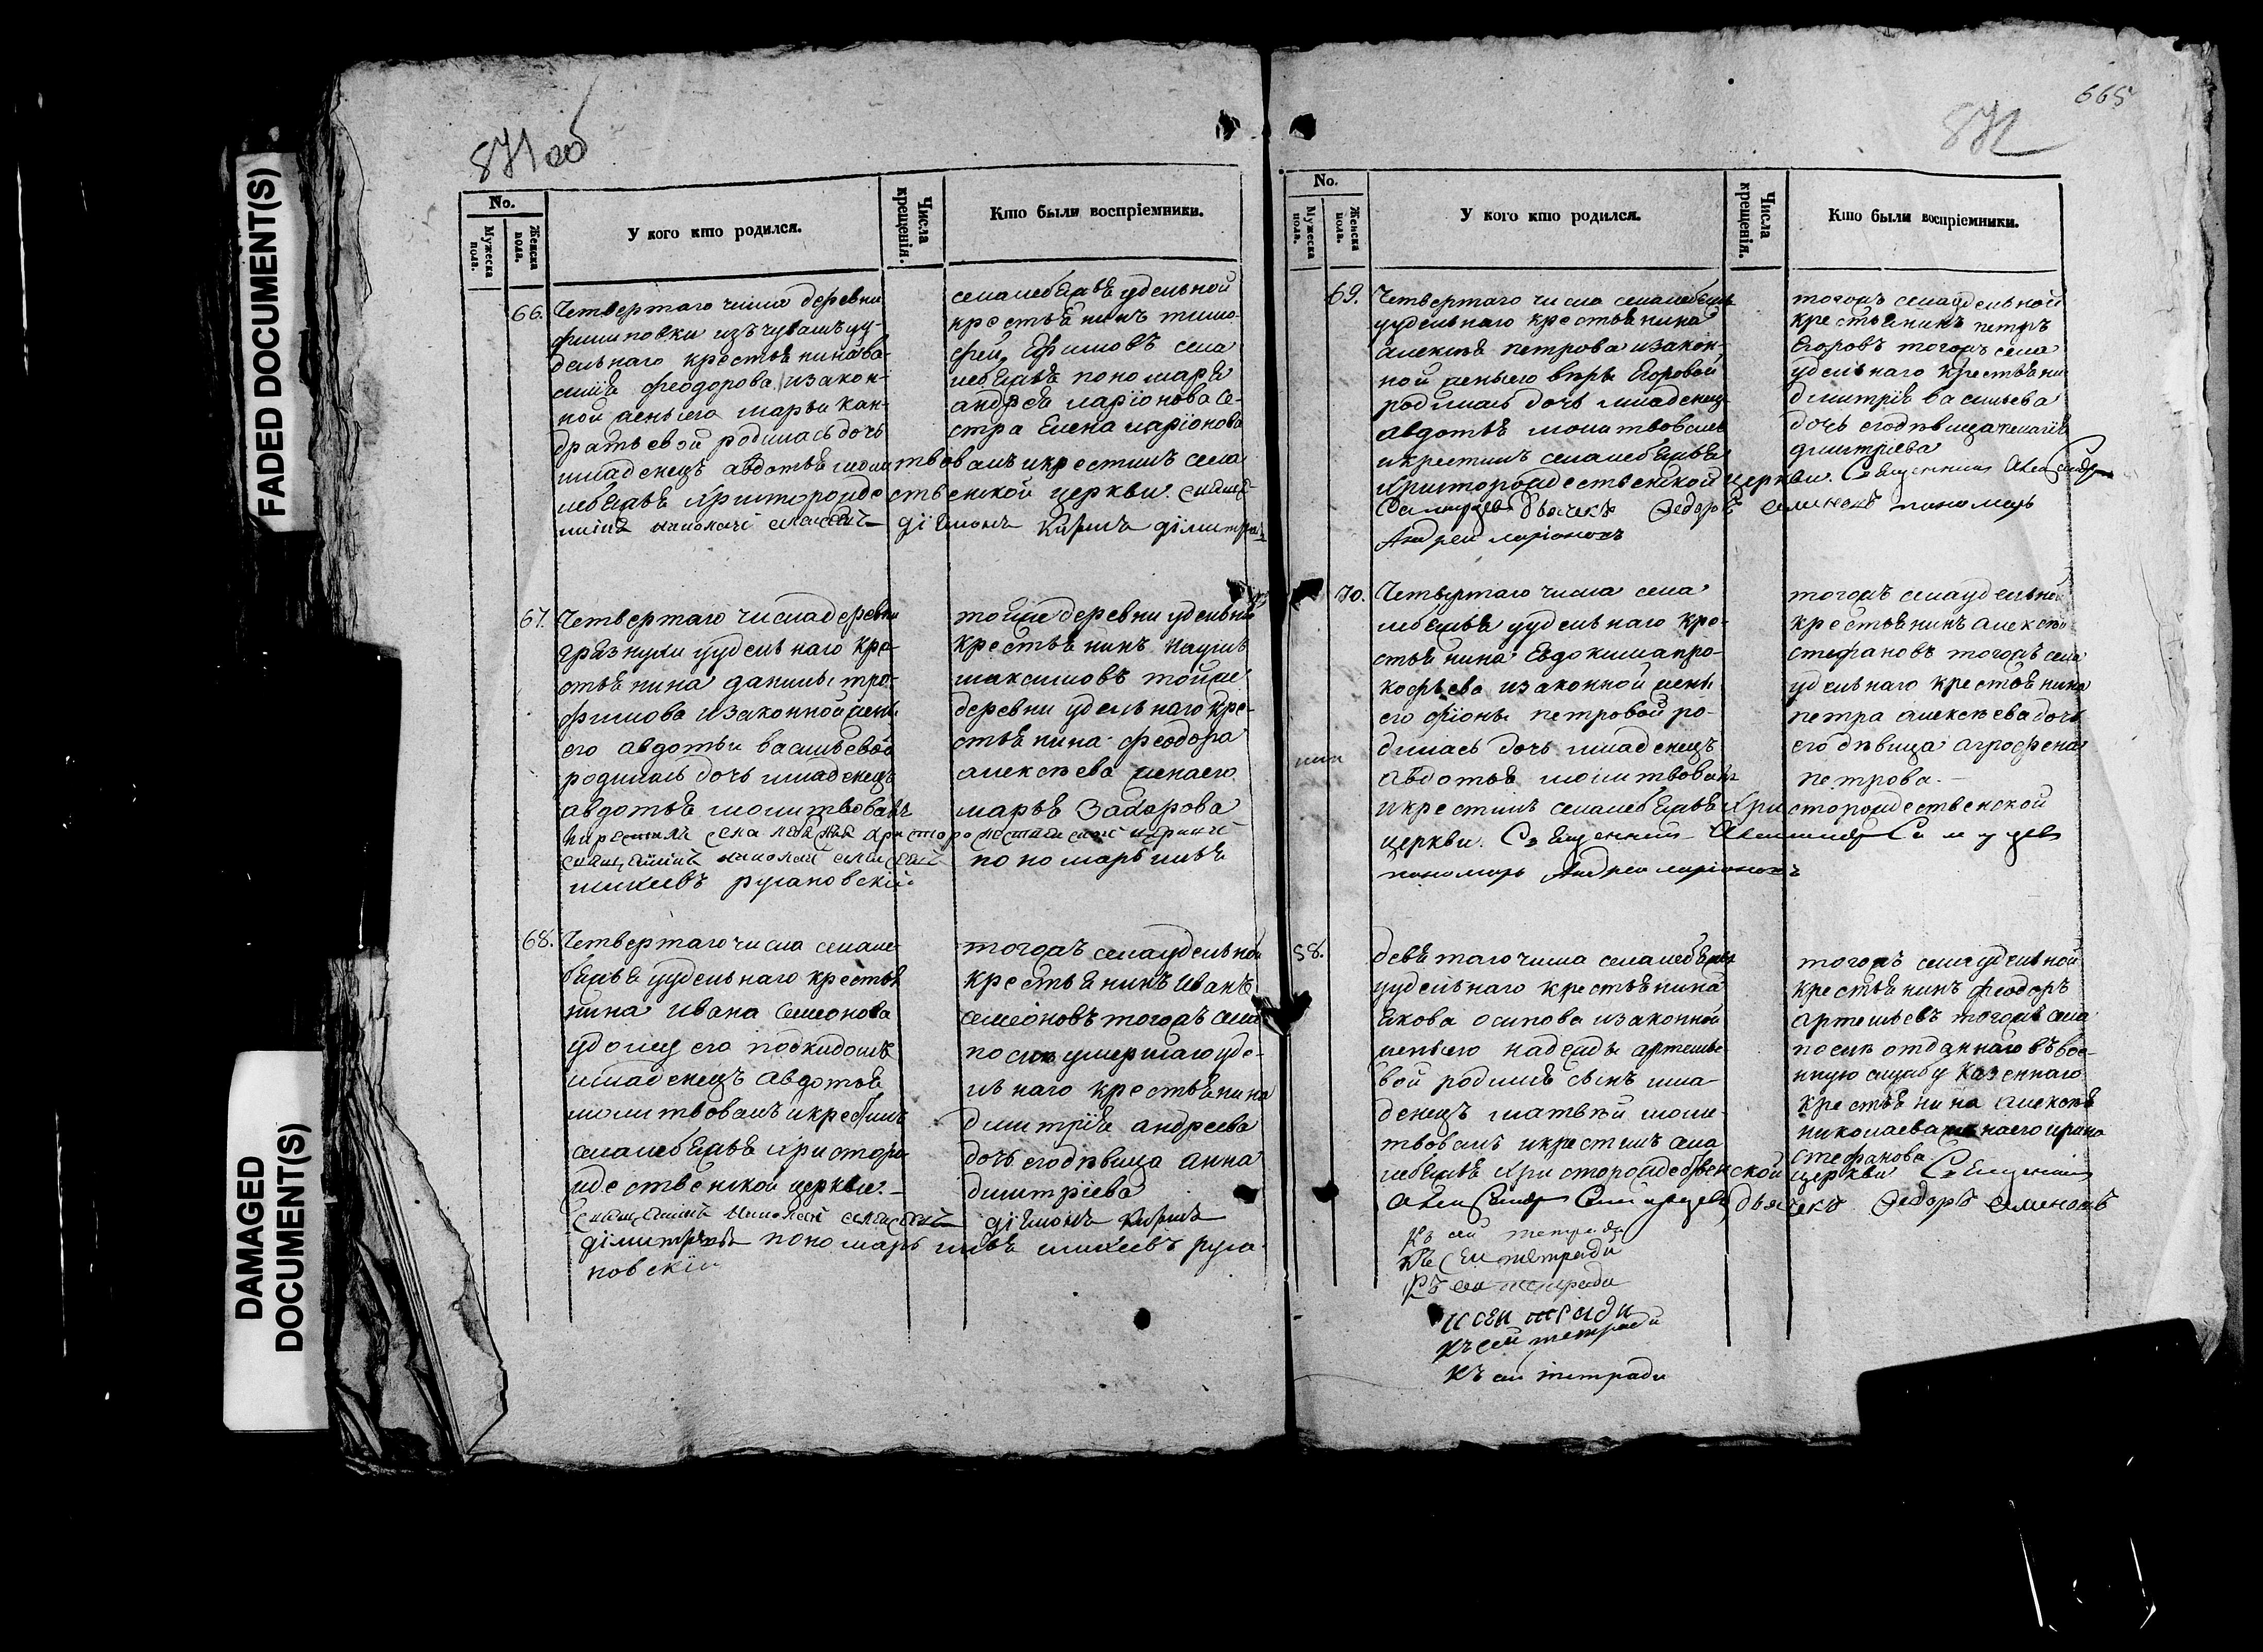 FADED DOCUMENT(S)
DAMAGED
DOCUMENT(S)
871 об
No.
Мужеска пола.
Женска пола.
У кого кто родился.
Числа крещенія.
Кто были воспріемники.
66. Четвертаго числа деревни
филиповки изъ чувашъ уу-
дельнаго крестьянина ва-
силья феодорова изакон-
ной жены его марьи кан-
дратьевой родилась дочь
младенецъ авдотья молитвовалъ икрестилъ села
лебяжья христорождественской церкви
села лебяжья удельной
крестьянинъ тимо-
фей Ефимовъ села
лебяжья пономаря
андрея ларіонова се-
стра Елена ларіонова
діяконъ
67. Четвертаго числа деревни
грязнухи ууделнаго кре-
стьянина данилы тро-
фимова изаконной жены
его авдотьи васильевой
родилась дочь младенецъ
авдотья молитвовалъ
икрестили села лебяжья
пономарь илья
михеевъ ругановскій
тойже деревни удельной
крестьянинъ наумъ
максимовъ тойже
деревни удельнаго кре-
стьянина феодора
алексеева жена его
марья Захарова
68. Четвертаго числа селале-
бяжья ууделнаго крестья
нина ивана семионова
удому его подкидошъ
младенецъ авдотья
молитвовалъ икрестилъ
села лебяжья христоро-
ждественской церкви.
діяконъ
пономарь илья михеевъ руга-
новскій
тогожъ села удельной
крестьянинъ иванъ
семионовъ тогожъ села
после умершаго уде-
льнаго крестьянина
димитрія андреева
дочь его дѣвица анна
димитріева
665
872
No.
Мужеска пола.
Женска пола.
У кого кто родился.
Числа крещенія.
Кто были воспріемники.
69. Четвертаго числа села лебяжья
ууделнаго крестьянина
алексея петрова изакон-
ной жены его веры Егоровой
родилась дочь младенецъ
авдотья молитвовалъ
икрестилъ села лебяжья
христорождественской церкви. Священникъ
дьячекъ Федоръ семеновъ пономарь
Андрей ларіоновъ
тогожъ села удельной
крестьянинъ петръ
Егоровъ тогожъ села
удельнаго крестьяни
димитрія васильева
дочь его дѣвица пелагея
дмитріева
70. Четвертаго числа села
лебяжья ууделнаго кре-
стьянина Евдокима про-
кофьева изаконной жены
его фіоны петровой ро-
дилась дочь младенецъ
авдотья молитвовалъ
икрестилъ села лебяжья христорождественской
церкви. Священникъ
пономарь Андрей ларіоновъ
тогожъ села удельной
крестьянинъ алексей
стефановъ тогожъ села
удельнаго крестьянина
петра алексеева дочь
его дѣвица агрофена
петрова.
58. девятаго числа села лебяжья
ууделнаго крестьянина
якова осипова изаконной
жены его надежды артемье-
вой родился сынъ мла-
денецъ матвѣй моли-
твовалъ икрестилъ села
лебяжья христорождественской церкви Священникъ
дьячекъ Федоръ семеновъ
тогожъ села удельной
крестьянинъ феодоръ
артемьевъ тогожъ села
после отданнаго въ вое-
нную службу казеннаго
крестьянина алексея
николаева жена его ирина
стефанова
Къ сей тетради
Къ сей тетради
Къ сей тетради
Къ сей тетради
Къ сей тетради